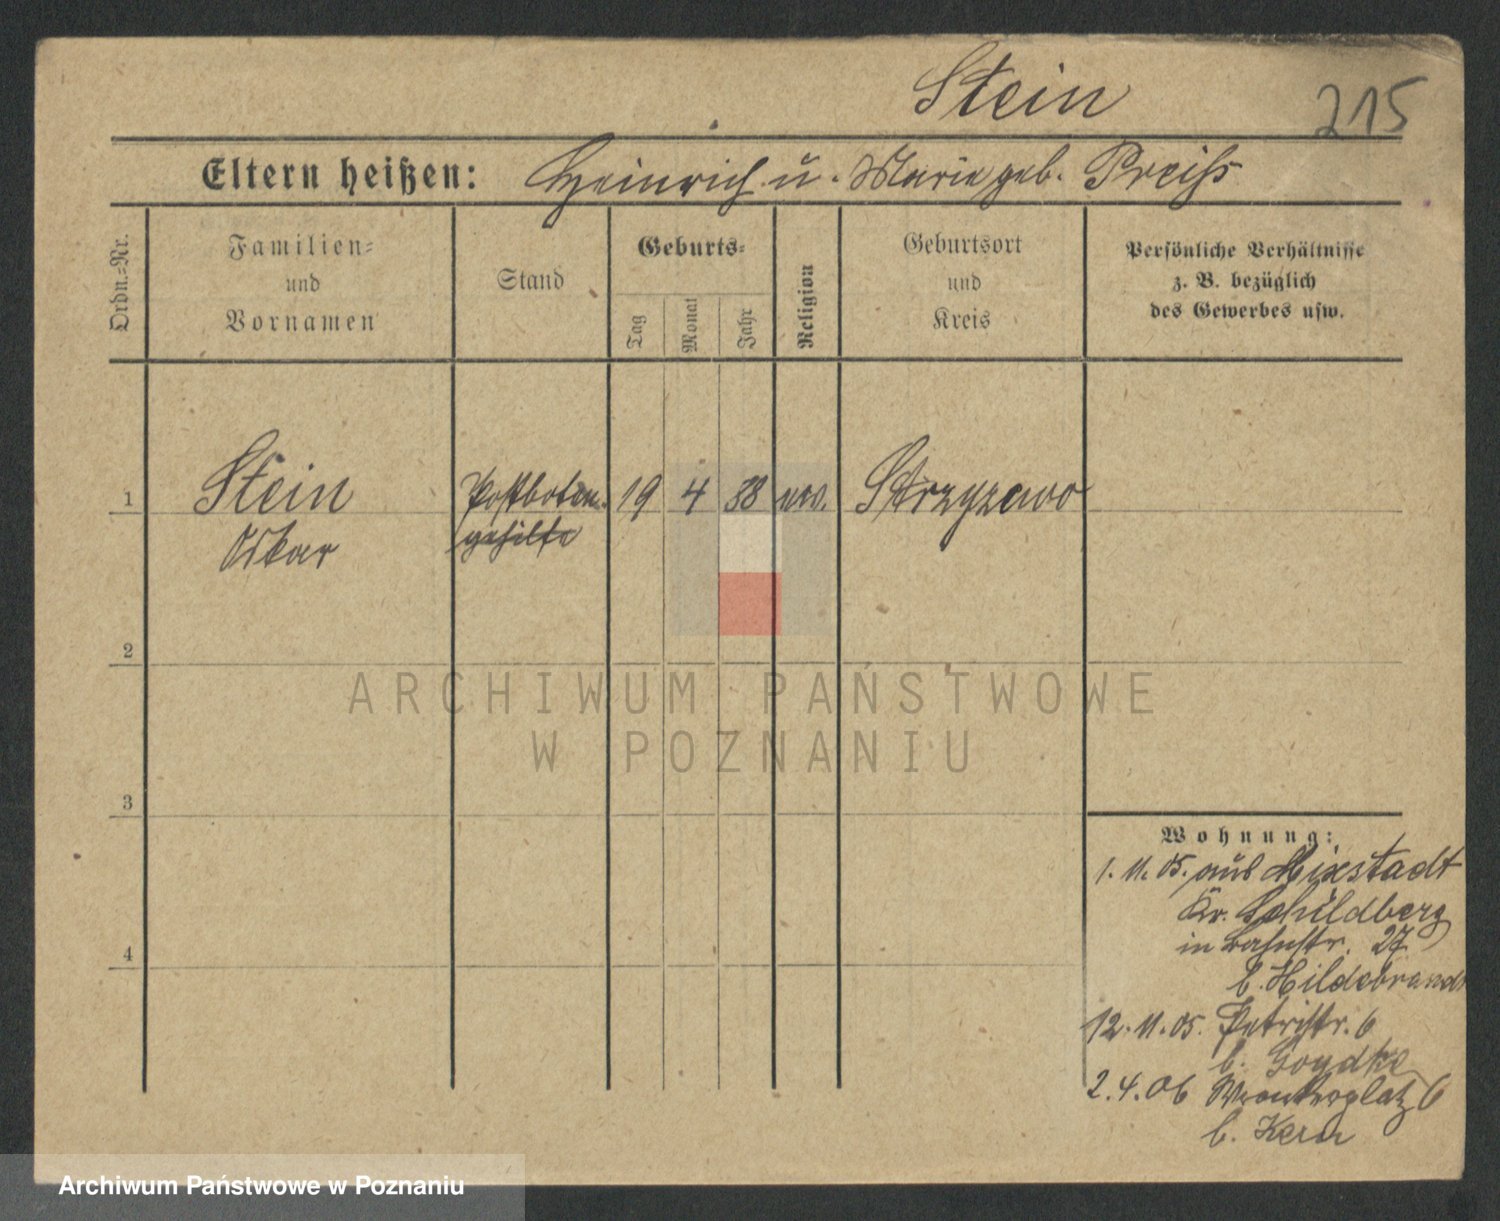 Stein
215
Eltern heißen: Heinrich u. Marie geb. Preiß
Ordn.=Nr.
Familien=
und
Vornamen
Stand
Geburts=
Tag
Monat
Jahr
Religion
Geburtsort
und
Kreis
Persönliche Verhältnisse
z. B. bezüglich
des Gewerbes usw.
1 Stein Postboten 19 4 88 ev. Strzyzewo
Oskar gehilfe
2
ARCHIWUM PAŃSTWOWE
W POZNANIU
3
Wohnung:
1. 11. 05. aus Mixstadt
Kr. Schildberg
in Bahnstr. 27
b. Hildebrandt
4
12. 11. 05. Petristr. 6
b. Goydke
2. 4. 06 Wronkerplatz 6
b. Kern
Archiwum Państwowe w Poznaniu